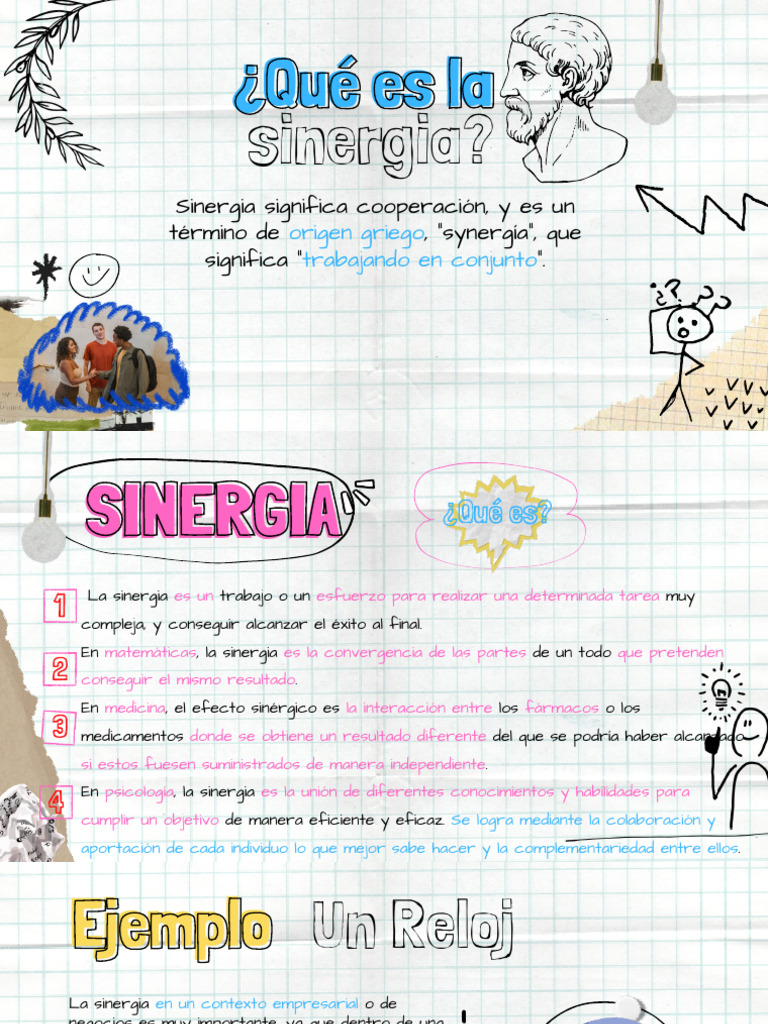 ¿Qué es la
sinergia?
Sinergia significa cooperación, y es un
término de origen griego, "synergía", que
significa "trabajando en conjunto".
¿? ??
SINERGIA
¿Qué es?
1 La sinergia es un trabajo o un esfuerzo para realizar una determinada tarea muy
compleja, y conseguir alcanzar el éxito al final.
2 En matemáticas, la sinergia es la convergencia de las partes de un todo que pretenden
conseguir el mismo resultado.
3 En medicina, el efecto sinérgico es la interacción entre los fármacos o los
medicamentos donde se obtiene un resultado diferente del que se podría haber alcanzado
si estos fuesen suministrados de manera independiente.
4 En psicología, la sinergia es la unión de diferentes conocimientos y habilidades para
cumplir un objetivo de manera eficiente y eficaz. Se logra mediante la colaboración y
aportación de cada individuo lo que mejor sabe hacer y la complementariedad entre ellos.
Ejemplo Un Reloj
La sinergia en un contexto empresarial o de
negocios es muy importante, ya que dentro de una